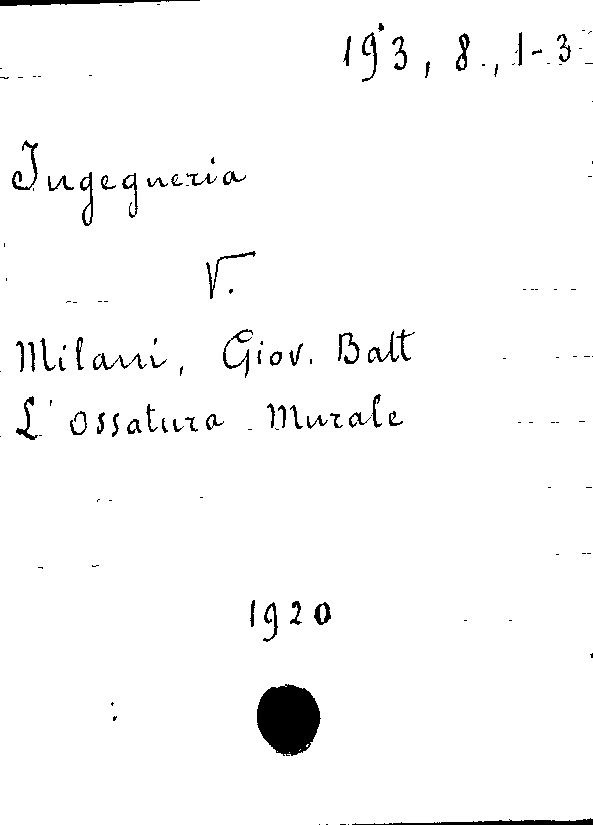 193, 8., 1-3
Ingegneria
V.
Milani, Giov. Batt
L'Ossatura Murale
1920